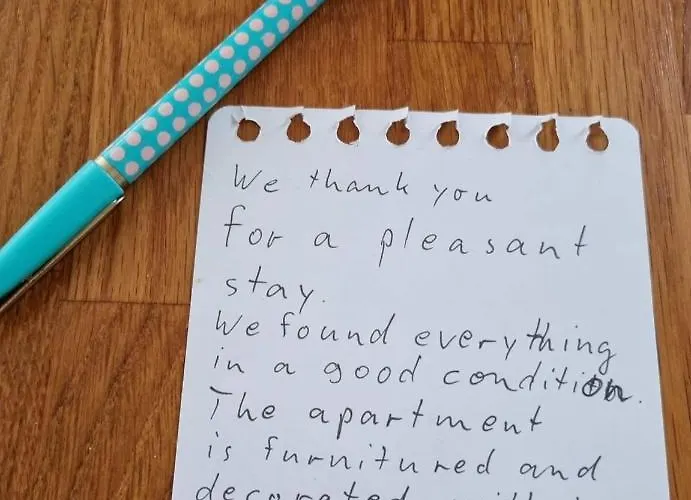 We thank you
for a pleasant
stay.
We found everything
in a good condition.
The apartment
is furnitured and
decorated